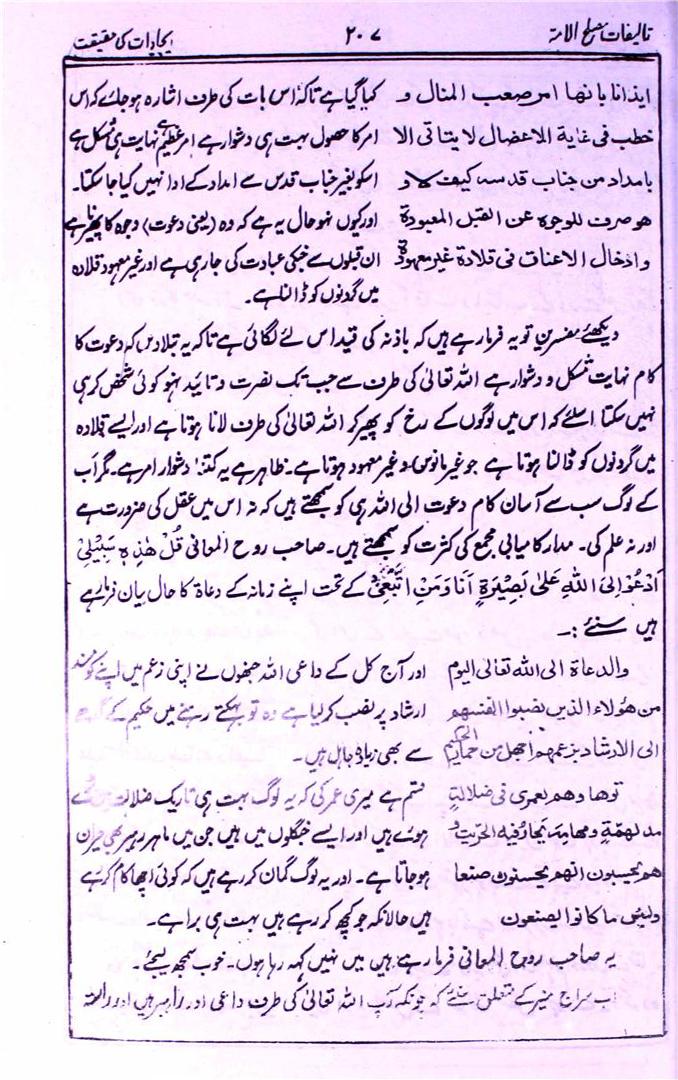 تالیفات مصلح الامۃ ۲۰۷ ایجادات کی حقیقت
ایذانا بانھا امر صعب المنال و
خطب فی غایة الاعضال لا یتاتی الا
بامداد من جناب قدسه کیف لا و
هو صرف للوجوه عن القبل المعبودة
و ادخال الاعناق فی قلادة غیر معهودة
کیا گیا ہے تاکہ اس بات کی طرف اشارہ ہو جائے کہ اس
امر کا حصول بہت ہی دشوار ہے امر عظیم ہے نہایت ہی مشکل ہے
اسکو بغیر جناب قدس سے امداد کے ادا نہیں کیا جا سکتا۔
اور کیوں نہو حال یہ ہے کہ وہ (یعنی دعوت) وجوہ کا پھیرنا ہے
ان قبلوں سے جنکی عبادت کی جارہی ہے اور غیر معہود قلادہ
میں گردنوں کو ڈالنا ہے۔
دیکھئے مفسرین تو یہ فرما رہے ہیں کہ باذنہ کی قید اس لئے لگائی ہے تاکہ یہ بتلادیں کہ دعوت کا
کام نہایت مشکل و دشوار ہے اللہ تعالیٰ کی طرف سے جب تک نصرت و تائید نہو کوئی شخص کر ہی
نہیں سکتا اسلئے کہ اس میں لوگوں کے رخ کو پھیر کر اللہ تعالیٰ کی طرف لانا ہوتا ہے اور ایسے قلادہ
میں گردنوں کو ڈالنا ہوتا ہے جو غیر مانوس و غیر معہود ہوتا ہے۔ ظاہر ہے یہ کتنا دشوار امر ہے۔ مگر اب
کے لوگ سب سے آسان کام دعوت الی اللہ ہی کو سمجھتے ہیں کہ نہ اس میں عقل کی ضرورت ہے
اور نہ علم کی۔ مدار کامیابی مجمع کی کثرت کو سمجھتے ہیں۔ صاحب روح المعانی قُلْ هٰذِهٖ سَبِيْلِيْ
اَدْعُوْ اِلَى اللهِ عَلٰى بَصِيْرَةٍ اَنَا وَمَنِ اتَّبَعَنِيْ کے تحت اپنے زمانہ کے دعاۃ کا حال بیان فرما رہے
ہیں سنئے :۔
والدعاة الی الله تعالی الیوم
من هؤلاء الذین نصبوا انفسهم
الی الارشاد بزعمهم اجهل من حمار الحکیم
توما وهم لعمری فی ضلالة
مدلهمة ومهامه یحار فیه الخریت و
هم یحسبون انهم یحسنون صنعا
ولبئس ما کانوا یصنعون
اور آج کل کے داعی اللہ جنھوں نے اپنی زعم میں اپنے کو مسند
ارشاد پر نصب کر لیا ہے وہ تو بہکتے رہنے میں حکیم کے گدھے
سے بھی زیادہ جاہل ہیں۔
قسم ہے میری عمر کی کہ یہ لوگ بہت ہی تاریک ضلالت میں پڑے
ہوئے ہیں اور ایسے جنگلوں میں ہیں جن میں ماہر رہبر بھی حیران
ہو جاتا ہے۔ اور یہ لوگ گمان کر رہے ہیں کہ کوئی اچھا کام کر رہے
ہیں حالانکہ جو کچھ کر رہے ہیں بہت ہی برا ہے۔
یہ صاحب روح المعانی فرما رہے ہیں میں نہیں کہہ رہا ہوں۔ خوب سمجھ لیجئے۔
اب سراج منیر کے متعلق سنئے کہ چونکہ آپ اللہ تعالیٰ کی طرف داعی اور راہبر ہیں اور